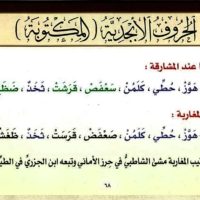 الحروف الأبجدية (المكتوبة)
عند المشارقة :
هَوَّزْ ، حُطِّي ، كَلَمُنْ ، سَعْفَصْ ، قَرَشَتْ ، ثَخَذٌ ، ضَظَغٌ
المغاربة :
هَوَّزْ ، حُطِّي ، كَلَمُنْ ، صَعْفَضْ ، قَرَسَتْ ، ثَخَذٌ ، ظَغَشٌ
المغاربة مشى الشاطبي في حرز الأماني وتبعه ابن الجزري في
٦٨